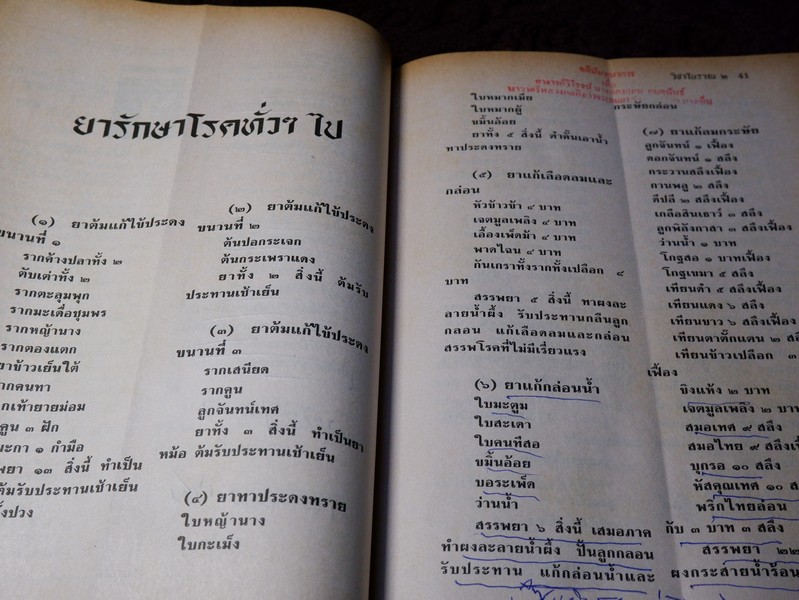 ยารักษาโรคทั่วๆ ไป
(๑) ยาต้มแก้ไข้ประดง
ขนานที่ ๑
รากค้างปลาทั้ง ๒
ตับเต่าทั้ง ๒
รากตะลุมพุก
รากมะเดื่อชุมพร
รากหญ้านาง
รากตองแตก
ยาข้าวเย็นใต้
รากคนทา
รากเท้ายายม่อม
คูน ๓ ฝัก
มะกา ๑ กำมือ
พยา ๑๓ สิ่งนี้ ทำเป็น
ต้มรับประทานเช้าเย็น
ทั้งปวง
(๒) ยาต้มแก้ไข้ประดง
ขนานที่ ๒
ต้นปอกระเจก
ต้นกระเพราแดง
ยาทั้ง ๒ สิ่งนี้ ต้มรับ
ประทานเช้าเย็น
(๓) ยาต้มแก้ไข้ประดง
ขนานที่ ๓
รากเสนียด
รากคูน
ลูกจันทน์เทศ
ยาทั้ง ๓ สิ่งนี้ ทำเป็นยา
หม้อ ต้มรับประทานเช้าเย็น
(๔) ยาทาประดงทราย
ใบหญ้านาง
ใบกะเม็ง
วิชาโบราณ ๒ 41
ใบหมากเมีย
ใบหมากผู้
ขมิ้นอ้อย
ยาทั้ง ๕ สิ่งนี้ ตำคั้นเอาน้ำ
ทาประดงทราย
(๕) ยาแก้เลือดลมและ
กล่อน
หัวข้าวข้า ๔ บาท
เจตมูลเพลิง ๔ บาท
เอื้องเพ็ดม้า ๔ บาท
พาดไฉน ๔ บาท
กันเกราทั้งรากทั้งเปลือก ๔
บาท
สรรพยา ๕ สิ่งนี้ ทาผงละ
ลายน้ำผึ้ง รับประทานกลืนลูก
กลอน แก้เลือดลมและกล่อน
สรรพโรคที่ไม่มีเรี่ยวแรง
(๖) ยาแก้กล่อนน้ำ
ใบมะตูม
ใบสะเดา
ใบคนทีสอ
ขมิ้นอ้อย
บอระเพ็ด
ว่านน้ำ
สรรพยา ๖ สิ่งนี้ เสมอภาค
ทำผงละลายน้ำผึ้ง ปั้นลูกกลอน
รับประทาน แก้กล่อนน้ำและ
กระษัยกล่อน
(๗) ยาแก้ลมกระษัย
ลูกจันทน์ ๑ เฟื้อง
ดอกจันทน์ ๑ สลึง
กระวานสลึงเฟื้อง
กานพลู ๒ สลึง
ดีปลี ๒ สลึงเฟื้อง
เกลือสินเธาว์ ๓ สลึง
ลูกพิลังกาสา ๓ สลึงเฟื้อง
ว่านน้ำ ๑ บาท
โกฐสอ ๑ บาทเฟื้อง
โกฐเขมา ๕ สลึง
เทียนดำ ๕ สลึงเฟื้อง
เทียนแดง ๖ สลึง
เทียนขาว ๖ สลึงเฟื้อง
เทียนตาตั๊กแตน ๒ สลึง
เทียนข้าวเปลือก ๓
เฟื้อง
ขิงแห้ง ๒ บาท
เจตมูลเพลิง ๒ บาท
สมอเทศ ๙ สลึง
สมอไทย ๙ สลึงเฟื้อง
บุกรอ ๑๐ สลึง
หัสคุณเทศ ๑๐ สลึง
พริกไทยล่อน
กับ ๓ บาท ๓ สลึง
สรรพยา ๒๒
ผงกระสายน้ำร้อน